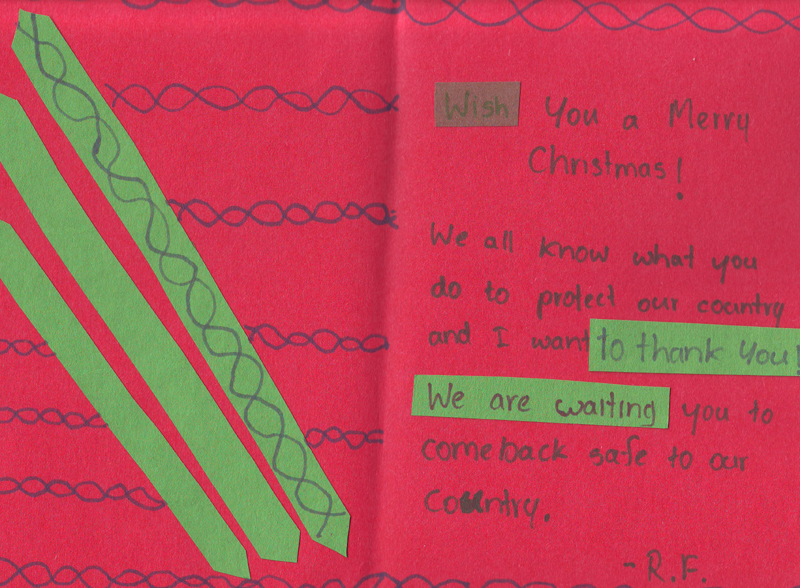 Wish You a Merry
Christmas!
We all know what you
do to protect our country
and I want to thank you!
We are waiting you to
come back safe to our
Country.
- R.F.